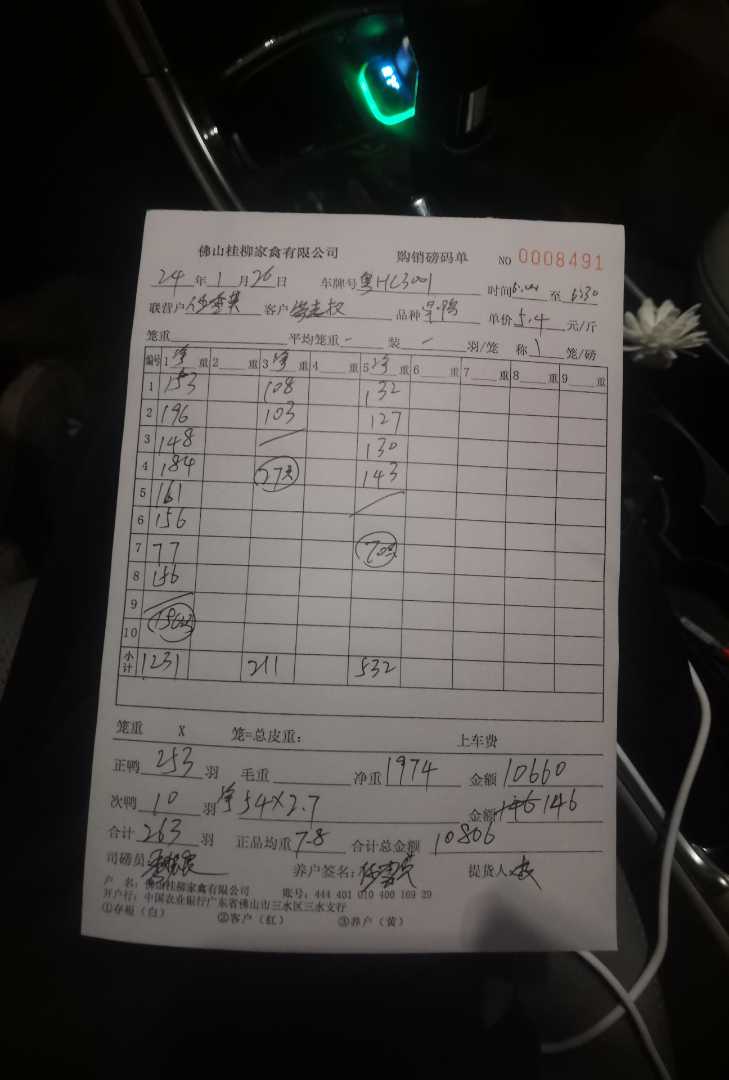 佛山桂柳家禽有限公司 购销磅码单 NO 0008491
24年1月26日 车牌号粤HC3001 时间 至 6:30
联营户 客户 品种 单价5.4元/斤
笼重 平均笼重 - 装 - 羽/笼 称 1 笼/磅
编号 1净重 2 重 3净重 4 重 5净重 6 重 7 重 8 重 9 重
1 153 108 132
2 196 103 127
3 148 130
4 184 27只 143
5 161
6 156
7 77 70只
8 156
9
10 156只
小计 1231 211 532
笼重 X 笼=总皮重: 上车费
正鸭253羽 毛重 净重1974 金额10660
次鸭10羽 净54×2.7 金额146
合计263羽 正品均重7.8 合计总金额10806
司磅员 养户签名: 提货人
户 名:佛山桂柳家禽有限公司 账号:444 401 010 400 169 29
开户行:中国农业银行广东省佛山市三水区三水支行
①存根(白) ②客户(红) ③养户(黄)